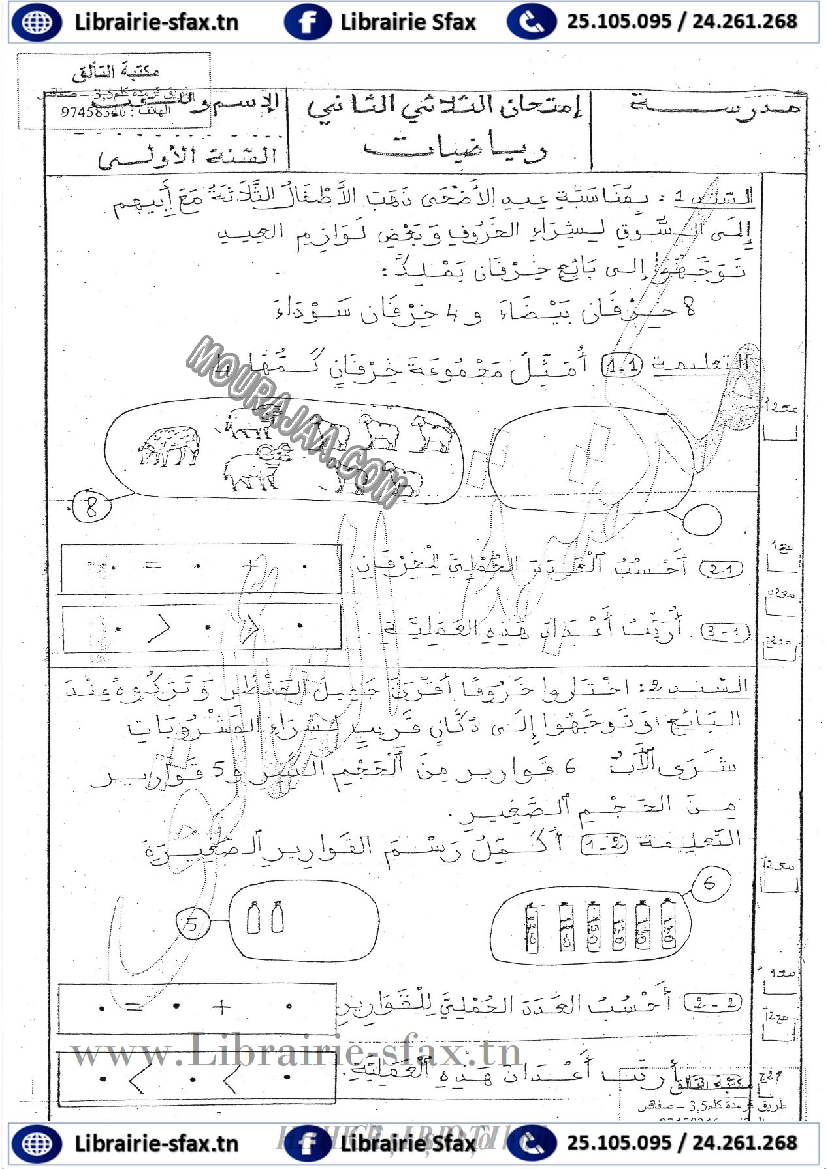 Librairie-sfax.tn Librairie Sfax 25.105.095 / 24.261.268
مكتبة التألق
97458546 : الهاتف
مدرسة
إمتحان الثلاثي الثاني
رياضيات
الإسم واللقب
السنة الأولى
السند 1 : بمُنَاسَبَة عيد الأضْحَى ذَهَبَ الأطْفَالُ الثَّلَاثَةُ مَعَ أَبِيهِم
إِلَى السُّوقِ لِشِرَاءِ الخَرُوفِ وَبَعْضِ لَوَازِمِ العِيدِ
تَوَجَّهُوا إلى بَائِعِ خِرْفَانٍ يَمْلِكُ :
8 خِرْفَان بَيْضَاءَ و 4 خِرْفَان سَوْدَاءَ
التعليمة 1.1 أُمَثِّلُ مَجْمُوعَةَ خِرْفَانٍ كَمُّهَا 4
MOURAJAA.COM
مع 1 2
8
2.1 أَحْسُبُ العَدَدَ الجُمْلِيَّ لِلْخِرْفَانِ
. + . = .
مع 1
3-1 أُرَتِّبُ أَعْدَادَ هَذِهِ العَمَلِيَّةِ .
. > . > .
السند 2 : اخْتَاروا خَرُوفًا أَقْرَنَ جَمِيلَ المَنْظَرِ وَتَرَكُوهُ عِنْدَ
البَائِعِ وَتَوَجَّهُوا إِلَى دُكَّانٍ قَرِيبٍ لِشِرَاءِ المَشْرُوبَاتِ
شَرَى الأَبُ 6 قَوارير مِنَ الحَجْمِ الكَبِيرِ و 5 قَوَارِير
مِنَ الحَجْمِ الصَّغِيرِ .
التعليمة 1-2 أُكْمِلُ رَسْمَ القَوارِيرِ الصَّغِيرَةِ
مع 1 2
6
5
مع 1
2-2 أَحْسُبُ العَدَدَ الجُمْلِيَّ لِلْقَوَارِيرِ
. + . = .
مع 2
www.Librairie-sfax.tn
أُرَتِّبُ أَعْدَادَ هَذِهِ العَمَلِيَّةِ .
. < . < .
مكتبة التألق
طريق قرمدة كلم 3,5 - صفاقس
Librairie-sfax.tn Librairie Sfax 25.105.095 / 24.261.268